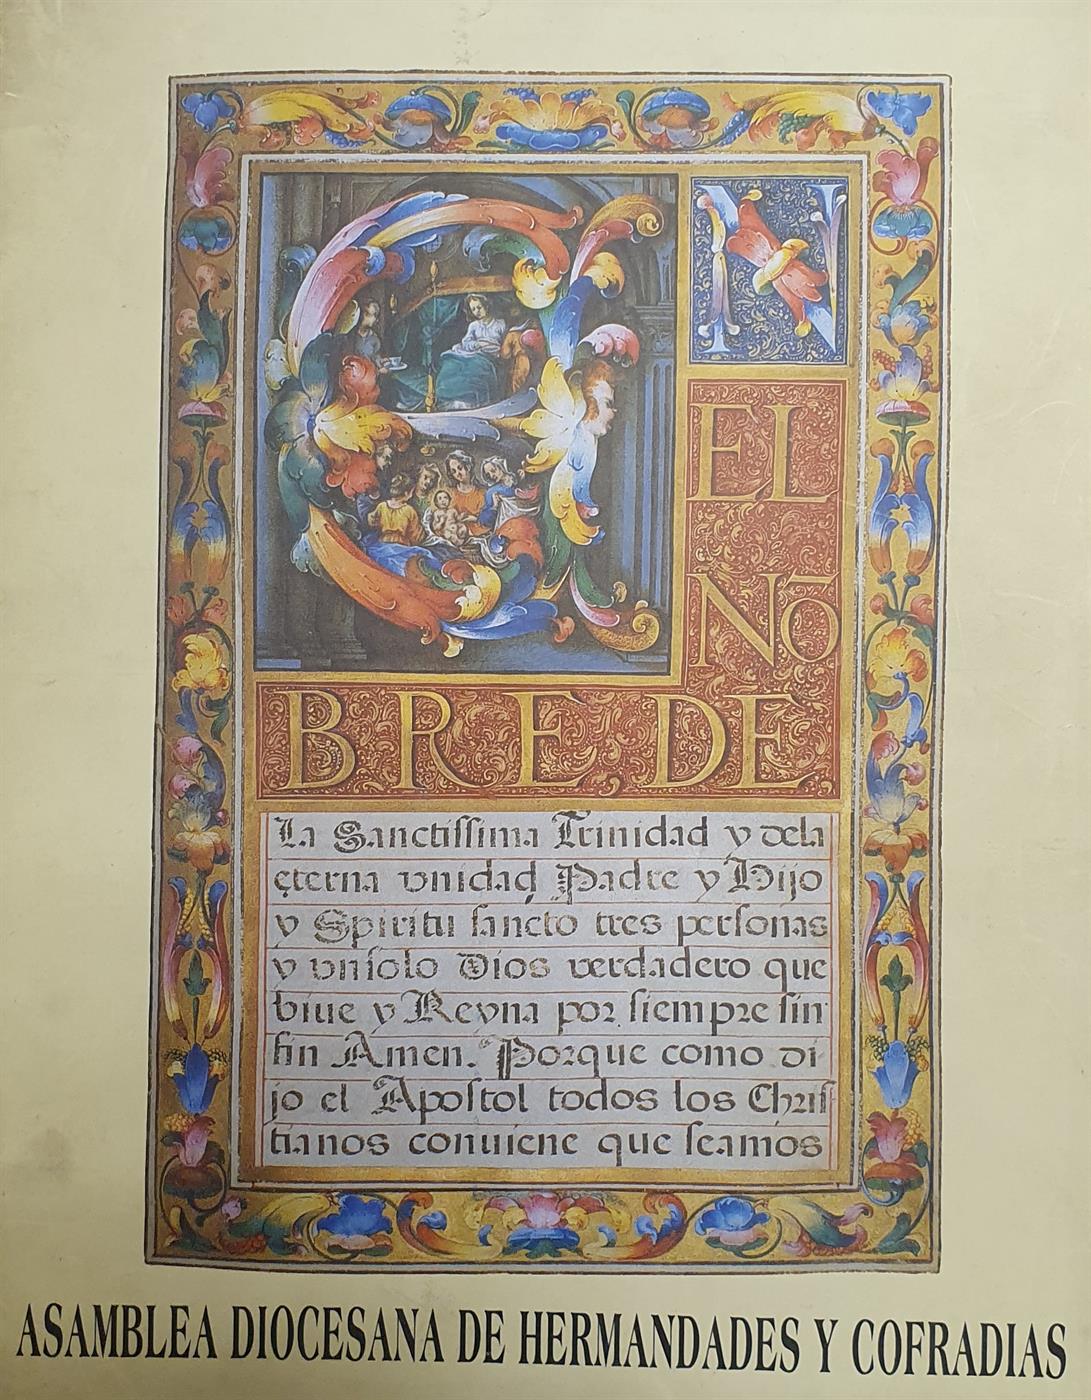 EN
EL
NŌ
BRE DE
La Sanctissima Trinidad y dela
eterna vnidad Padre y Hijo
y Spiritu sancto tres personas
y vnsolo Dios verdadero que
biue y Reyna por siempre sin
fin Amen. Porque como di
jo el Apostol todos los Chris
tianos conuiene que seamos
ASAMBLEA DIOCESANA DE HERMANDADES Y COFRADIAS